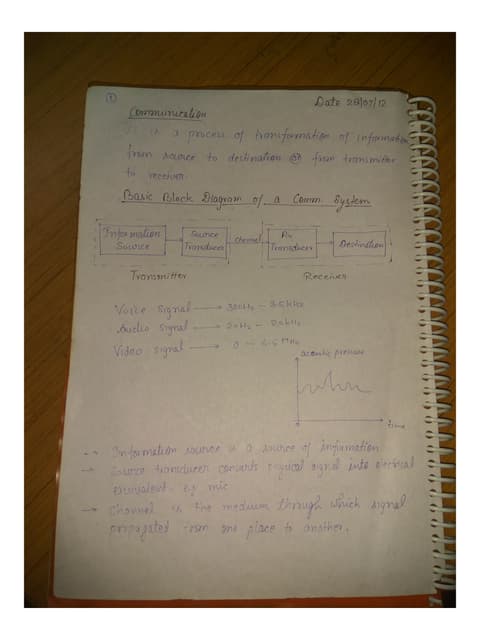 1
Date 28/07/12
Communication
It is a process of transformation of information
from source to destination or from transmitter
to receiver
Basic Block Diagram of a Comm. System
Information Source
Source Transducer
channel
Transducer
Destination
Transmitter
Receiver
Voice Signal → 300Hz - 3.5kHz
Audio signal → 20Hz - 20kHz
Video signal → 0 - 4.5 MHz
acoustic pressure
time
→ Information source is a source of information
→ Source transducer converts physical signal into electrical
equivalent. Eg mic
→ Channel is the medium through which signal
propagated from one place to another.